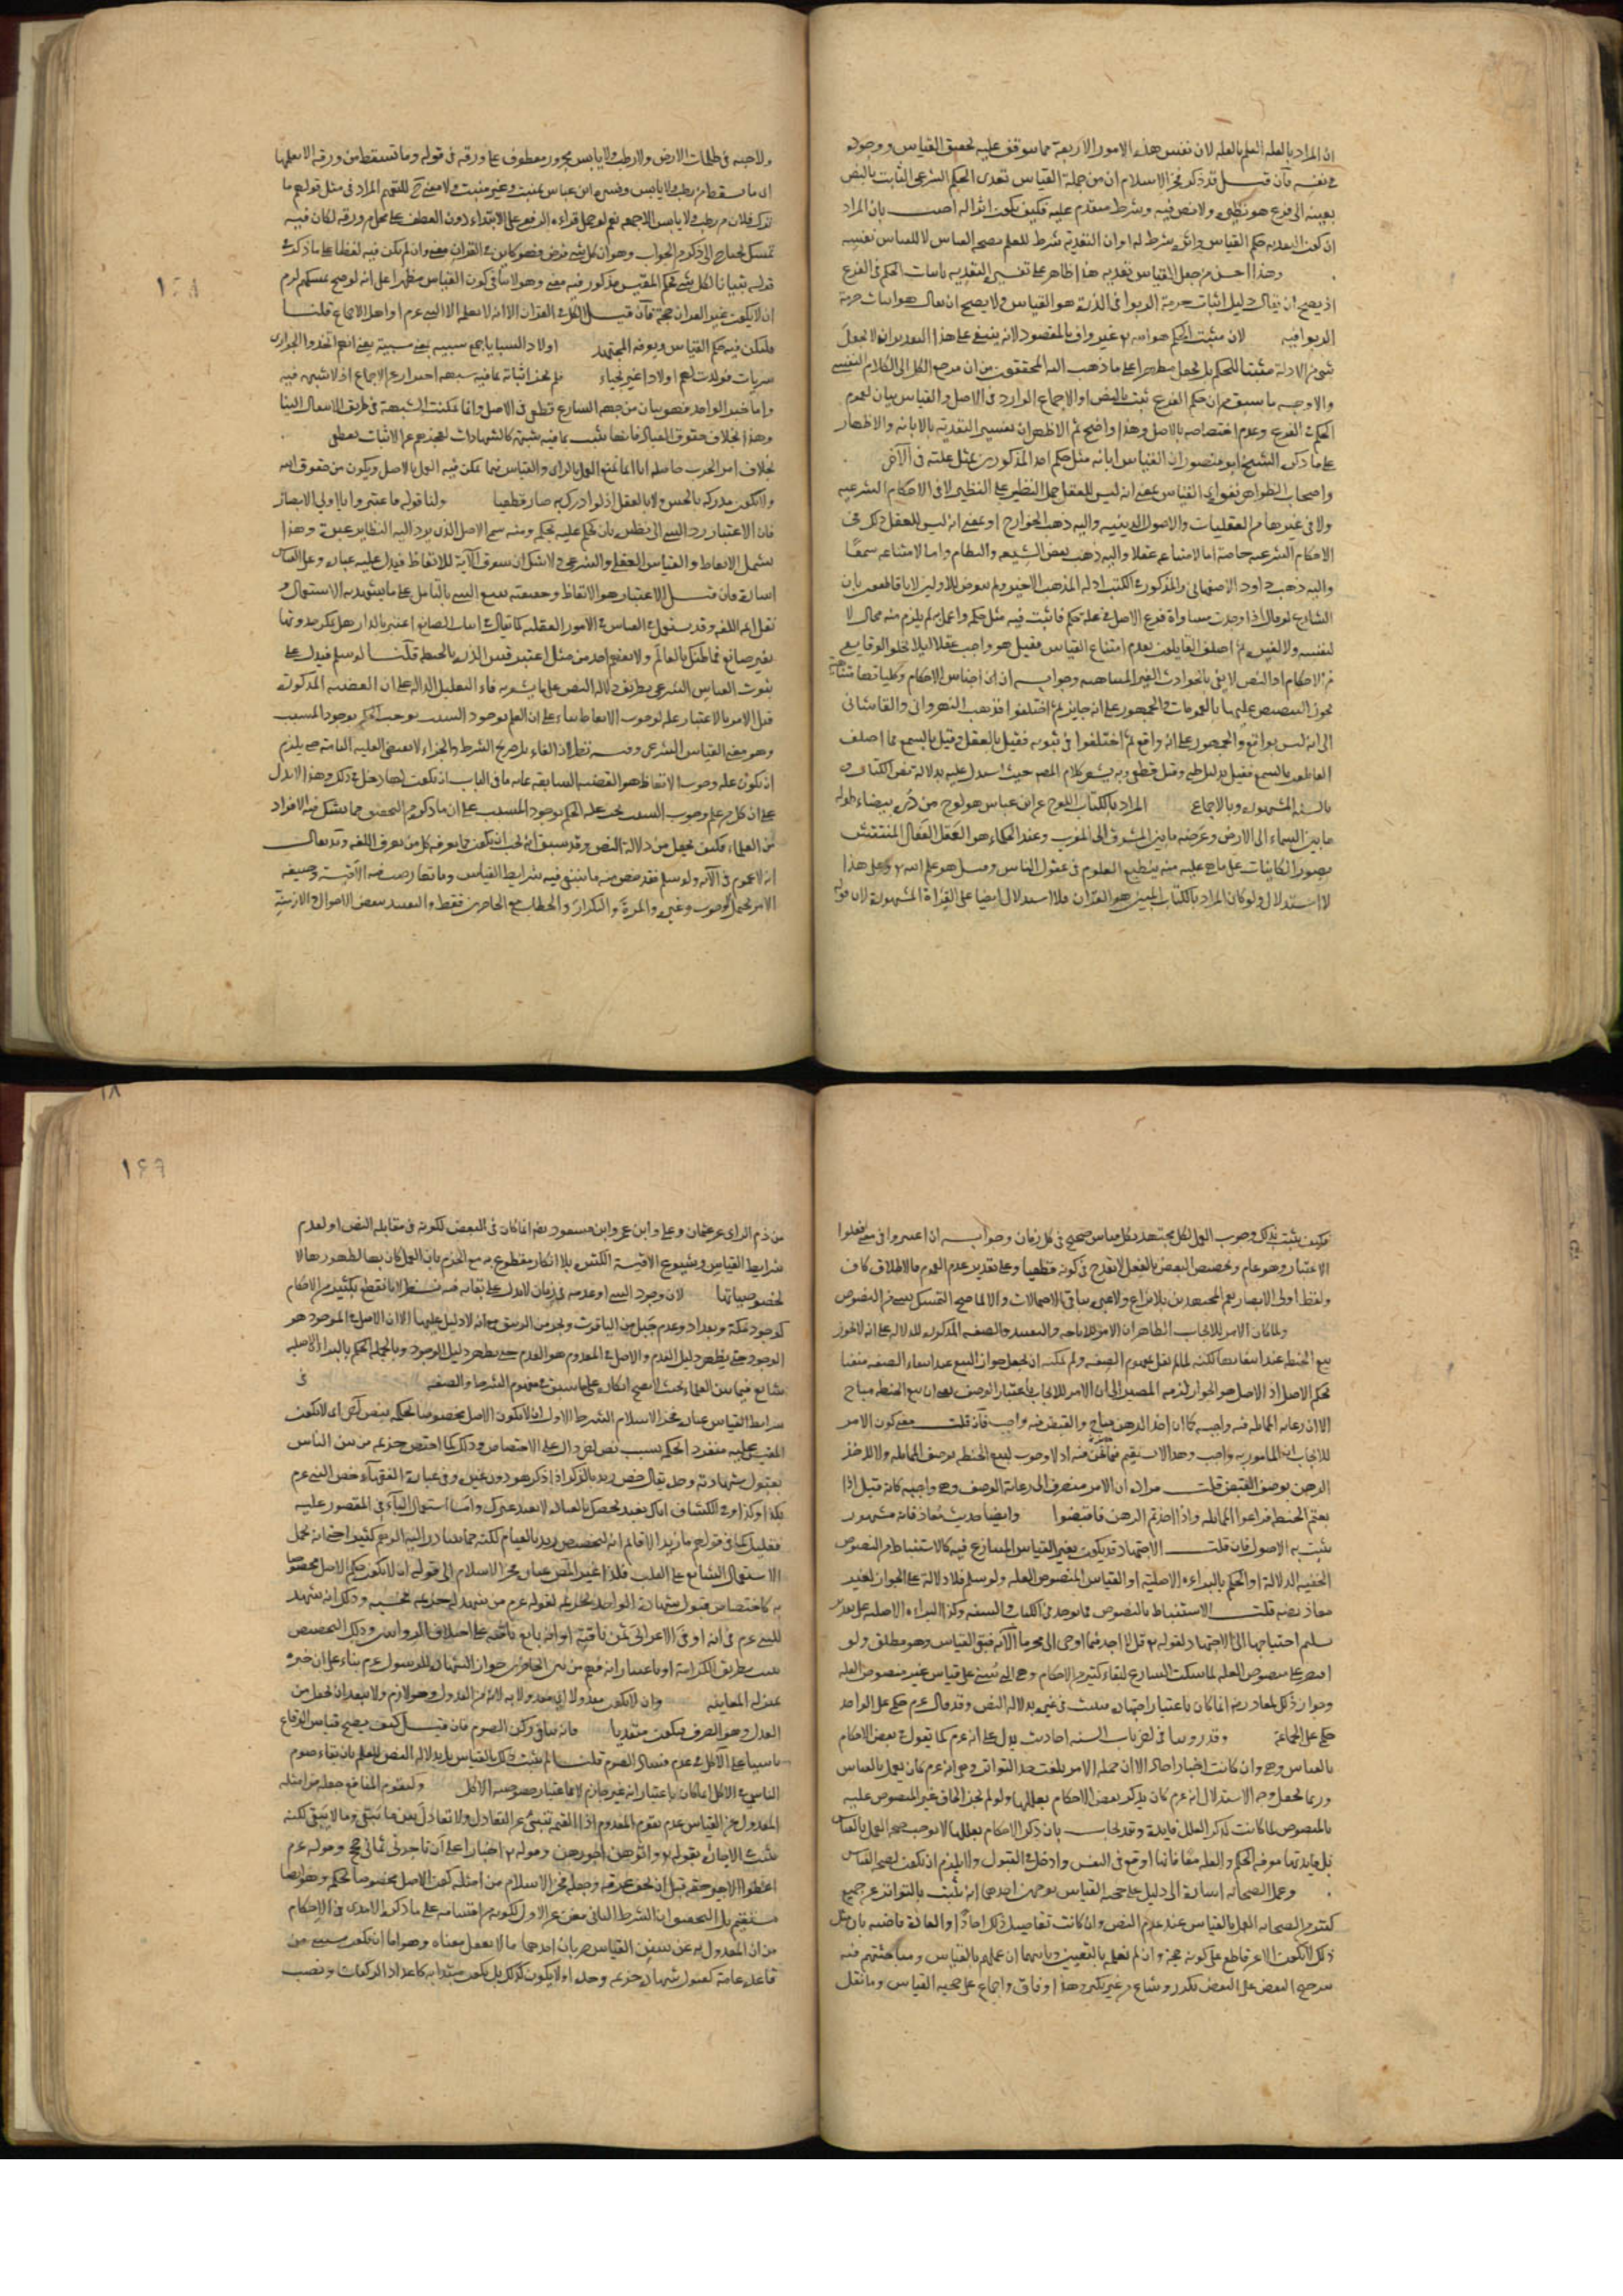 ان المراد بالعلة العلم بالعلة لان نفس هذه الامور الاربعة مما يتوقف عليه تحقيق القياس ووجوده
في نفسه فان قيل قد ذكر فخر الاسلام ان من جملة القياس تعدى الحكم الشرعي الثابت بالنص
بعينه الى فرع هو نظيره ولا نص فيه وشرط متقدم عليه فكيف يكون اثرا له اجيب بان المراد
ان كون التعدية حكم القياس واثره شرط له او ان التعدية شرط للعلم بصحة القياس لا للقياس نفسه
وهذا احسن من جعل القياس تعدية هذا ظاهر على تفسير التعدية باثبات الحكم في الفرع
اذ يصح ان يقال دليل اثبات حرمة الربوا في الذرة هو القياس ولا يصح ان يقال هو اثبات حرمة
الربوا فيه لان مثبت الحكم هو الله غير واف بالمقصود لانه ينبغي على هذا التقدير ان لا يجعل
شئ من الادلة مثبتا للحكم بل يجعل مظهرا على ما ذهب اليه المحققون من ان مرجع الكل الى الكلام النفسي
والاوجه ما سبق من ان حكم الفرع ثبت بالنص او الاجماع الوارد في الاصل والقياس بيان لعموم
الحكم في الفرع وعدم اختصاصه بالاصل وهذا واضح ثم الاظهر ان تفسير التعدية بالابانة والاظهار
على ما ذكره الشيخ ابو منصور ان القياس ابانة مثل حكم احد المذكورين بمثل علته في الآخر
واصحاب الظواهر نفوه اي القياس بمعنى انه ليس للعقل حمل النظير على النظير لا في الاحكام الشرعية
ولا في غيرها من العقليات والاصول الدينية واليه ذهب الخوارج او بمعنى انه ليس للعقل ذلك في
الاحكام الشرعية خاصة اما لامتناعه عقلا واليه ذهب بعض الشيعة والنظام واما لامتناعه سمعا
واليه ذهب داود الاصفهاني والمذكور في الكتب ادلة المذهب الاخير ولم يتعرض للاولين لانا قاطعون بان
الشارع لو قال اذا وجدت مساواة فرع الاصل في علة حكم فاثبت فيه مثل حكمه واعمل به لم يلزم منه محال لا
لنفسه ولا لغيره ثم اختلف القايلون بعدم امتناع القياس فقيل هو واجب عقلا لئلا تخلو الوقايع
من الاحكام اذ النص لا يفي بالحوادث الغير المتناهية وجوابه ان اجناس الاحكام وكلياتها متناهية
يجوز التنصيص عليها بالعمومات والجمهور على انه جايز ثم اختلفوا فذهب النهرواني والقاشاني
الى انه ليس بواقع والجمهور على انه واقع ثم اختلفوا في ثبوته فقيل بالعقل وقيل بالسمع ثم اختلف
القائلون بالسمع فقيل بدليل ظني وقيل قطعي وبه يشعر كلام المصنف حيث استدل عليه بدلالة نص الكتاب و
بالسنة المشهورة وبالاجماع المراد بالكتاب اللوح عن ابن عباس هو لوح من در بيضاء طوله
ما بين السماء الى الارض وعرضه ما بين المشرق الى المغرب وعند الحكماء هو العقل الفعال المنتقش
بصور الكاينات على ما هي عليه منه ينطبع العلوم في عقول الناس وقيل هو علم الله وعلى هذا
لا استدلال ولو كان المراد بالكتاب المبين هو القرآن فلا استدلال ايضا على القراة المشهورة لان قوله
ولا حبة في ظلمات الارض ولا رطب ولا يابس مجرور معطوف على ورقة في قوله وما تسقط من ورقة الا يعلمها
اى ما يسقط من رطب ولا يابس وعن ابن عباس ينبت وغير منبت ولا معنى ح للتعميم المراد في مثل قولهم ما
ترك فلان من رطب ولا يابس الا جمعه نعم لو حمل قراءة الرفع على الابتداء دون العطف على محل من ورقة لكان فيه
تمسك يحتاج الى ذكره الجواب وهو ان كل شئ فرض فهو كاين في القرآن معنى وان لم يكن فيه لفظا على ما ذكر في
قوله تبيانا لكل شئ فحكم المقيس مذكور فيه معنى وهو لا ينافي كون القياس مظهرا على انه لو صح تمسكهم لزم
ان لا يكون غير القرآن حجة فان قيل الكل في القرآن الا انه لا يعلمه الا النبي عم او اهل الاجماع قلنا
فليكن فيه حكم القياس ويعرفه المجتهد اولاد السبايا جمع سبية بمعنى مسبية يعني انهم اتخذوا الجواري
سريات فولدت لهم اولادا غير نجباء فلم يجز اثباته بما فيه شبهة احتراز عن الاجماع اذ لا شبهة فيه
واما خبر الواحد فهو بيان من جهة الشارع قطعي في الاصل وانما تمكنت الشبهة في طريق الاتصال الينا
وهذا بخلاف حقوق العباد فانها تثبت بما فيه شبهة كالشهادات لعجزهم عن الاثبات بقطعي
بخلاف امر الحرب حاصله انا انما نمنع العمل بالراى والقياس فيما يمكن فيه العمل بالاصل ويكون من حقوق الله
ولا يكون مدركه بالحس ولا بالعقل اذ لو ادرك به صار قطعيا ولنا قوله فاعتبروا يا اولي الابصار
فان الاعتبار رد الشئ الى نظيره بان يحكم عليه بحكمه ومنه سمي الاصل الذي يرد اليه النظاير عبرة وهذا
يشمل الاتعاظ والقياس العقلي والشرعي ولا شك ان سوق الآية للاتعاظ فيدل عليه عبارة وعلى القياس
اشارة فان قيل الاعتبار هو الاتعاظ وحقيقته تتبع الشئ بالتأمل على ما يشهد به الاستعمال و
نقل ايمة اللغة وقد يستعمل في القياس في الامور العقلية كما يقال في اثبات الصانع اعتبر بالدار هل يمكن حدوثها
بغير صانع فما ظنك بالعالم ولا يفهم احد من مثل اعتبر قس الذرة بالحنطة قلنا لو سلم فيدل على
ثبوت القياس الشرعي بطريق دلالة النص على ما يشعر به فاء التعليل الدالة على ان القضية المذكورة
قبل الامر بالاعتبار علة لوجوب الاتعاظ بناء على ان العلم بوجود السبب يوجب الحكم بوجود المسبب
وهو معنى القياس الشرعي وفيه نظر لان الفاء بل صريح الشرط والجزاء لا يقتضي العلية التامة حتى يلزم
ان تكون علة وجوب الاتعاظ هو القضية السابقة غاية ما في الباب ان يكون لها دخل في ذلك وهذا لا يدل
على ان كل من علم وجود السبب يجب عليه الحكم بوجود المسبب على ان ما ذكره من التحقيق مما يشكل فيه الافراد
من العلماء فكيف يجعل من دلالة النص وقد سبق انه يجب ان يكون مما يعرفه كل من يعرف اللغة وقد يقال
انه لا عموم في الآية ولو سلم فقد خص منه ما ينتفي فيه شرايط القياس وما تعارضت فيه الاقيسة وصيغة
الامر يحتمل الوجوب وغيره والمرة والتكرار والخطاب مع الحاضرين فقط والتقييد ببعض الاحوال والازمنة
١٦٨
١٦٩
فكيف يثبت بذلك وجوب العمل لكل مجتهد بكل قياس صحيح في كل زمان وجوابه ان اعتبروا في معنى افعلوا
الاعتبار وهو عام وتخصيص البعض بالعقل لا يقدح في كونه قطعيا وعلى تقدير عدم العموم فالاطلاق كاف
ولفظ اولى الابصار يعم المجتهدين بلا نزاع ولا عبرة بباقي الاحتمالات والا لما صح التمسك بشئ من النصوص
ولما كان الامر للايجاب الظاهر ان الامر للاباحة والتقييد بالصفة المذكورة للدلالة على انه لا يجوز
بيع الحنطة عند انتفائها لكنه لما لم يقل بمفهوم الصفة ولم يمكنه ان يجعل جواز البيع عند انتفاء الصفة منفيا
بحكم الاصل اذ الاصل هو الجواز لزمه المصير الى ان الامر للايجاب باعتبار الوصف بمعنى ان بيع الحنطة مباح
الا ان رعاية المماثلة فيه واجبة كما ان اخذ الرهن مباح والقبض فيه واجب فان قلت معنى كون الامر
للايجاب ان المامور به واجب وهذا لا يستقيم فيما نحن فيه اذ لا وجوب لبيع الحنطة بوصف المماثلة ولا لاخذ
الرهن بوصف القبض قلت مراده ان الامر منصرف الى رعاية الوصف وهي واجبة كانه قيل اذا
بعتم الحنطة فراعوا المماثلة واذا اخذتم الرهن فاقبضوا وايضا حديث معاذ فانه مشهور
يثبت به الاصول فان قلت الاجتهاد قد يكون بغير القياس المتنازع فيه كالاستنباط من النصوص
الخفية الدلالة او الحكم بالبراءة الاصلية او القياس المنصوص العلة ولو سلم فلا دلالة على الجواز لغير
معاذ رضه قلت الاستنباط بالنصوص مما يوجد في الكتاب والسنة وكذا البراءة الاصلية على تقدير
تسليم احتياجها الى الاجتهاد لقوله تع قل لا اجد فيما اوحى الى محرما الآية فبقي القياس وهو مطلق ولو
اقتصر على منصوص العلة لما سكت الشارع لبقاء كثير من الاحكام وهي التي تبتني على قياس غير منصوص العلة
وجواز ذلك لمعاذ رضه انما كان باعتبار اجتهاده فيثبت في غيره بدلالة النص وقد قال عم حكمي على الواحد
حكمي على الجماعة وقد روينا في اخر باب السنة احاديث يدل على انه عم كما يقول في بعض الاحكام
بالقياس وهي وان كانت اخبار احاد الا ان جملة الامر بلغت حد التواتر وهي انه عم كان يعمل بالقياس
وربما يجعل وجه الاستدلال انه عم كان يذكر بعض الاحكام بعللها ولو لم يجز الحاق غير المنصوص عليه
بالمنصوص لما كانت لذكر العلل فايدة وقد يجاب بان ذكر الاحكام بعللها لا يوجب صحة العمل بالقياس
بل فايدتها معرفة الحكم والعلة معا فانها اوقع في النفس وادخل في القبول ولا يلزم ان يكون لصحة القياس
وعمل الصحابة اشارة الى دليل على حجية القياس بوجهين احدهما انه ثبت بالتواتر عن جميع
كثير من الصحابة العمل بالقياس عند عدم النص وان كانت تفاصيل ذلك احادا والعادة قاضية بان مثل
ذلك لا يكون الا عن قاطع على كونه حجة وان لم نعلم بالتعيين وثانيهما ان عملهم بالقياس ومباحثتهم فيه
بترجيح البعض على البعض تكرر وشاع من غير نكير وهذا وفاق واجماع على حجية القياس وما نقل
من ذم الراى عن عثمان وعلى وابن عمر وابن مسعود رضه انما كان في البعض لكونه في مقابلة النص او لعدم
شرايط القياس وشيوع الاقيسة الكثيرة بلا انكار مقطوع به مع الجزم بان العمل كان بها لظهورها لا
لخصوصياتها لان وجود الشئ او عدمه في زمان لا يدل على بقائه فيه نظر لانا نقطع بكثير من الاحكام
كوجود مكة وبغداد وعدم جبل من الياقوت وبحر من الزيبق مع انه لا دليل عليها الا ان الاصل في الموجود هو
الوجود حتى يظهر دليل العدم والاصل في المعدوم هو العدم حتى يظهر دليل الوجود وبالجملة الحكم بالبراءة الاصلية
شايع فيما بين العلماء بحيث لا يصح انكاره على ما سبق في مفهوم الشرط والصفة في
شرايط القياس عبارة فخر الاسلام الشرط الاول ان لا يكون الاصل مخصوصا بحكمه بنص آخر اى لا يكون
المقيس عليه منفردا بحكمه بسبب نص اخر دال على الاختصاص وذلك كما اختص خزيمة من بين الناس
بقبول شهادته وحده يقال خص زيد بالذكر اذا ذكر هو دون غيره وفي عبارة الفقهاء خص النبي عم
بكذا وكذا وفي الكشاف اياك نعبد نخصك بالعبادة لا نعبد غيرك واما استعمال الباء في المقصور عليه
فقليل كما في قولهم ما زيد الا قائم انه لتخصيص زيد بالقيام لكنه مما يتبادر اليه الوهم كثيرا حتى انه يحمل
الاستعمال الشايع على القلب فلذا غير المصنف عبارة فخر الاسلام الى قوله ان لا يكون حكم الاصل مخصوصا
به كاختصاص قبول شهادة الواحد بخزيمة لقوله عم من شهد له خزيمة فحسبه وذلك انه شهد
للنبي عم في انه اوفى الاعرابى ثمن ناقته او انه بايع ناقته على اختلاف الروايتين وذلك التخصيص
يثبت بطريق الكرامة او باعتبار انه فهم من بين الحاضرين جواز الشهادة للرسول عم بناء على ان خبره
بمنزلة المعاينة وان لا يكون معدولا اى معدولا به لانه من العدول وهو لازم ولا يبعد ان يجعل من
العدل وهو الصرف فيكون متعديا فانه ينافي ركن الصوم فان قيل كيف يصح قياس الوقاع
ناسيا على الاكل في عدم فساد الصوم قلنا لم يثبت ذلك بالقياس بل بدلالة النص للعلم بان بقاء صوم
الناسي في الاكل انما كان باعتبار انه غير جان لا باعتبار خصوصية الاكل وكتقوم المنافع جعله من امثلة
المعدول عن القياس عدم تقوم المعدوم اذ القيمة تنبئ عن التعادل ولا تعادل بين ما يبقى وما لا يبقى لكنه
يثبت في الاجارة بقوله تع وآتوهن اجورهن وقوله تع اخبارا على ان تأجرني ثماني حجج وقوله عم
اعطوا الاجير حقه قبل ان يجف عرقه وجعله فخر الاسلام من امثلة كون الاصل مخصوصا بحكمه وهو ايضا
مستقيم بل التحقيق ان الشرط الثاني مغن عن الاول لكونه من اقسامه على ما ذكره الآمدى في الاحكام
من ان المعدول به عن سنن القياس ضربان احدهما ما لا يعقل معناه وهو اما ان يكون مستثنى من
قاعدة عامة كقبول شهادة خزيمة وحده او لا يكون كذلك بل يكون مبتدأ به كاعداد الركعات ونصب